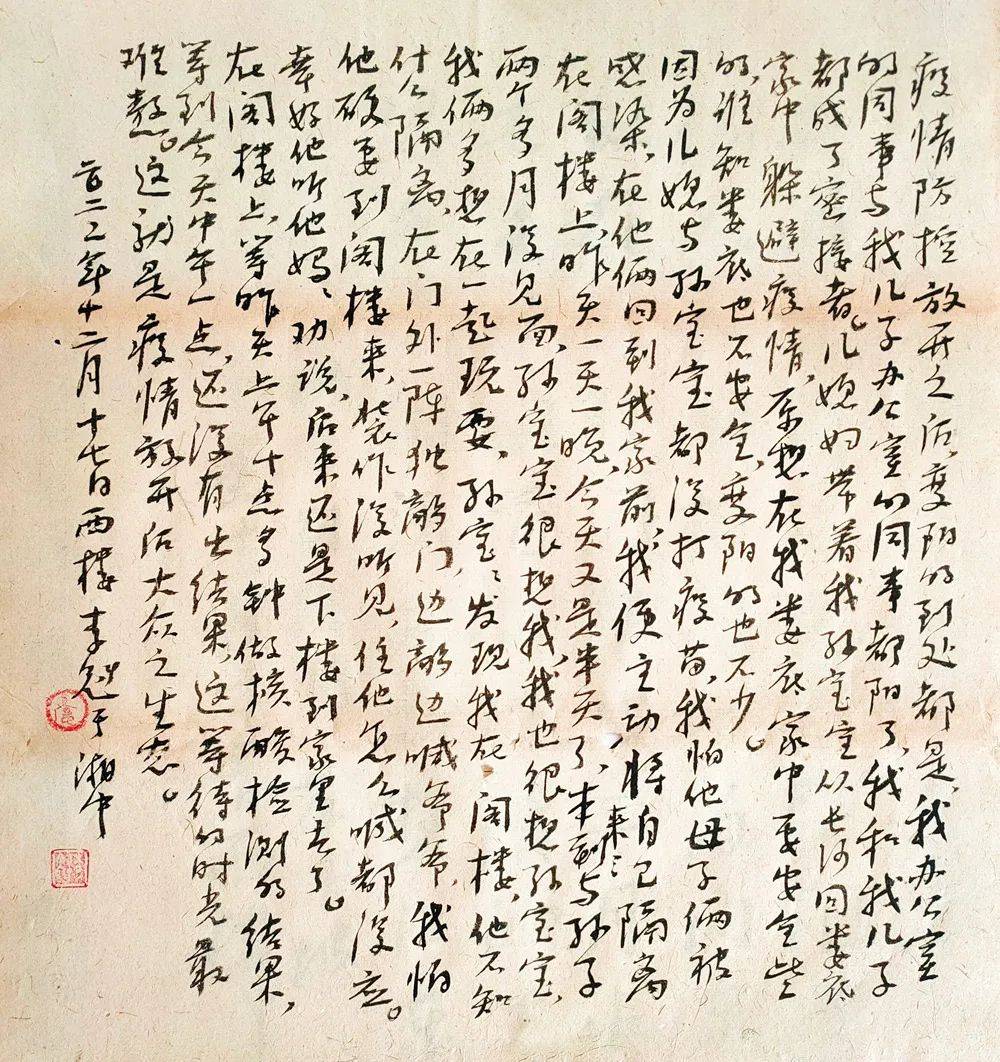 疫情防控放开之后,变阳的到处都是,我办公室
的同事与我儿子办公室的同事都阳了,我和我儿子
都成了密接者。儿媳妇带着我孙宝宝从长沙回娄底
家中躲避疫情,原想在我娄底家中要安全些
的,谁知娄底也不安全,变阳的也不少。
因为儿媳与孙宝宝都没打疫苗,我怕他母子俩被
感染,在他俩回到我家前,我便主动将自己隔离
在阁楼上,昨天一天一晚,今天又是半天了,本来与孙子
两个多月没见面,孙宝宝很想我,我也很想孙宝宝,
我俩多想在一起玩耍,孙宝宝发现我在阁楼,他不知
什么隔离,在门外一阵独敲门,边敲边喊爷爷,我怕
他硬要到阁楼来,装作没听见,任他怎么喊都没应。
幸好他听他妈妈劝说,后来还是下楼到家里去了。
在阁楼上,等昨天上午十点多钟做核酸检测的结果,
等到今天中午一点,还没有出结果,这等待的时光最
难熬。这就是疫情放开后大众之生态。
二〇二二年十二月十七日西楼李 于湘中